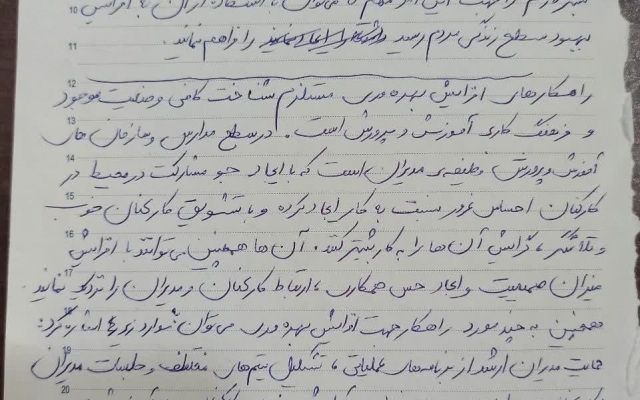 10
بهبود سطح زندگی مردم رسید را فراهم نمایند.
11
12
راهکارهای افزایش بهره وری مستلزم شناخت کافی وضعیت موجود
13
و فرهنگ کاری آموزش و پرورش است. در سطح مدارس و سازمان های
14
آموزش و پرورش، وظیفه ی مدیران است که با ایجاد جو مشارکت در محیط در
15
کارکنان احساس غرور نسبت به کار ایجاد کرده و با تشویق کارکنان خوب
16
و تلاشگر، گرایش آن ها را به کار بیشتر کنند. آن ها همچنین می توانند با افزایش
17
میزان صمیمیت و ایجاد حس همکاری، ارتباط کارکنان و مدیران را نزدیک نمایند
همچنین به چند مورد راهکار جهت افزایش بهره وری می توان: موارد زیر را اشاره کرد:
19
حمایت مدیران ارشد از برنامه های عملیاتی، تشکیل تیم های مختلف و جلسات مدیران
20